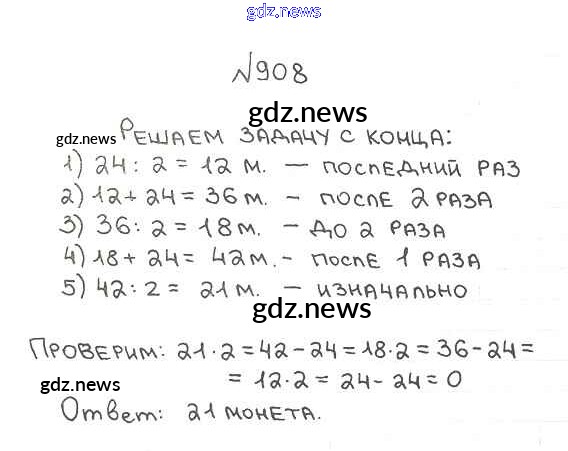 gdz.news
№908
gdz.news
gdz.news Решаем задачу с конца:
1) 24 : 2 = 12 м. — последний раз
2) 12 + 24 = 36 м. - после 2 раза
3) 36 : 2 = 18 м. - до 2 раза
4) 18 + 24 = 42 м. - после 1 раза
5) 42 : 2 = 21 м. - изначально
gdz.news
Проверим: 21 · 2 = 42 - 24 = 18 · 2 = 36 - 24 =
gdz.news = 12 · 2 = 24 - 24 = 0
Ответ: 21 монета.